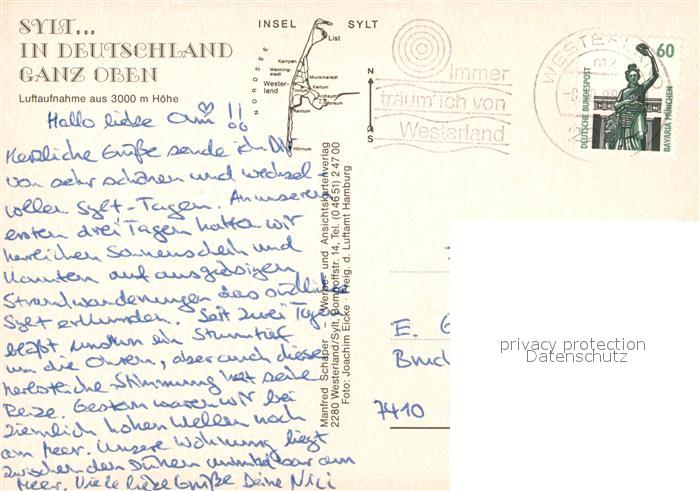 SYLT...
IN DEUTSCHLAND
GANZ OBEN
Luftaufnahme aus 3000 m Höhe
INSEL SYLT
NORDSEE
List
Kampen
Wenning-
stedt
Wester-
land
Munkmarsch
Keitum
Tinnum
Archsum
Morsum
Rantum
Hörnum
N
S
immer
träum' ich von
Westerland
DEUTSCHE BUNDESPOST
60
BAVARIA MÜNCHEN
Hallo liebe Omi!!
Herzliche Grüße sende ich Dir
von sehr schönen und wechsel-
vollen Sylt-Tagen. An unseren
ersten drei Tagen hatten wir
herrlichen Sonnenschein und
konnten auf ausgiebigen
Strandwanderungen das südliche
Sylt erkunden. Seit zwei Tagen
bläßt nun ein Sturmtief
um die Ohren, aber auch diese
herbstliche Stimmung hat seine
Reize. Gestern waren wir bei
ziemlich hohen Wellen noch
am Meer. Unsere Wohnung liegt
zwischen den Dünen unmittelbar am
Meer. Viele liebe Grüße Deine Nici
Manfred Schaper – Werbe- und Ansichtskartenverlag
2280 Westerland/Sylt, Bomhoffstr. 14, Tel. (0 46 51) 2 47 00
Foto: Joachim Eicke · Freig. d. Luftamt Hamburg
E. G
Bruc
7410
privacy protection
Datenschutz